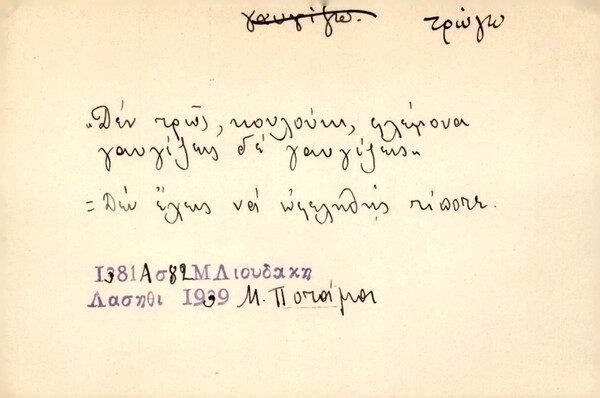 γαυγίζω. τρώγω
„Δέν τρῶς, κουλούκι, φλέμονα
γαυγίζεις δέ γαυγίζεις"
= Δέν ἔχεις νά ὠφεληθῆς τίποτε.
1381 Α σ 82 Μ Λιουδακη
Λασηθι 1939 Μ. Ποτάμοι